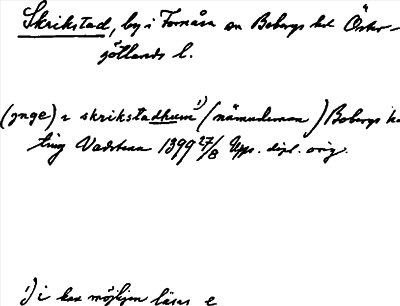 Skrikstad, by i Fornåsa sn Bobergs hd Öster-
götlands l.
(ynge) i skrikstadhum¹⁾ (nämndeman) Bobergs hd
ting Vadstena 1399 27/8 Upps. dipl. orig.
¹⁾ i kan möjligen läsas e